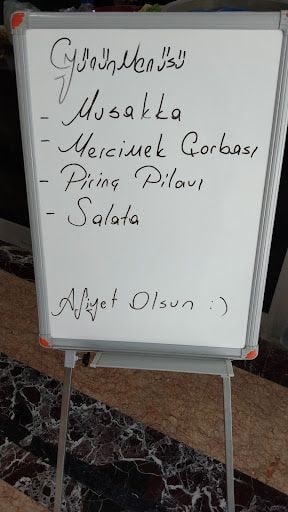 Günün Menüsü
- Musakka
- Mercimek Çorbası
- Pirinç Pilavı
- Salata
Afiyet Olsun :)